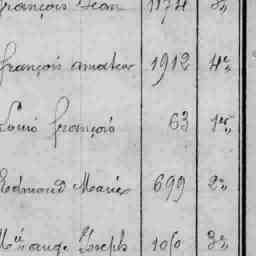 François Jean 1174 3e
François amateur 1912 4e
Louis François 63 1e
Edmond Marie 699 2e
Mélange Joseph 1050 3e